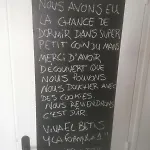 NOUS AVONS EU
LA CHANCE DE
DORMIR DANS SUPER
PETIT COIN DU MANS
MERCI D'AVOIR
DÉCOUVERT QUE
NOUS POUVONS
NOUS DOUCHER AVEC
DES COOKIES.
NOUS REVIENDRONS
C'EST SÛR
VIVA EL BETIS
Y LA